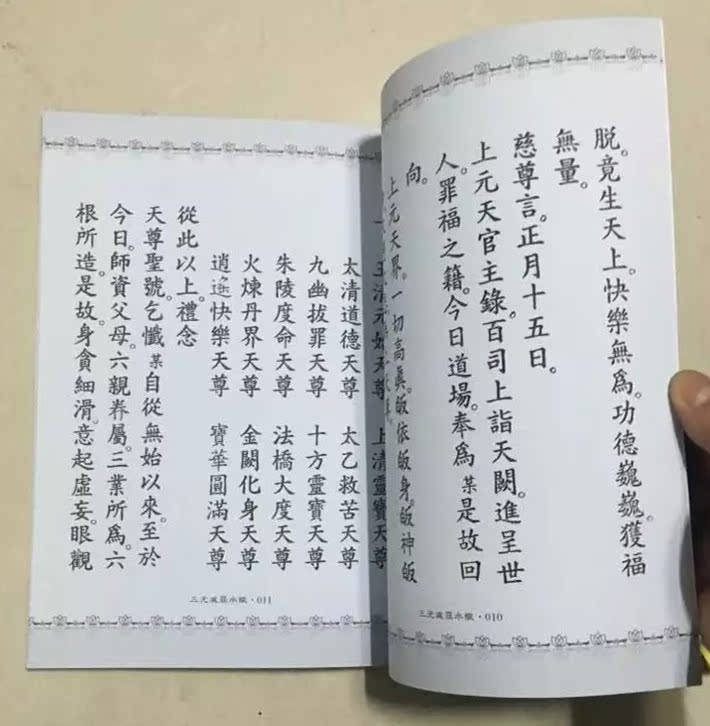 脱。竟生天上。快樂無爲。功德巍巍。獲福
無量。
慈尊言。正月十五日。
上元天官主錄。百司上詣天闕。進呈世
人罪福之籍。今日道場。奉爲某是故回
向。
上元天界。一切高眞。皈依皈身。皈神皈
三元滅罪水懺·010
玉清元始天尊 上清靈寶天尊
太清道德天尊 太乙救苦天尊
九幽拔罪天尊 十方靈寶天尊
朱陵度命天尊 法橋大度天尊
火煉丹界天尊 金闕化身天尊
逍遙快樂天尊 寶華圓滿天尊
從此以上。禮念
天尊聖號。乞懺某自從無始以來。至於
今日。師資父母。六親眷屬。三業所爲。六
根所造。是故。身貪細滑。意起虛妄。眼觀
三元滅罪水懺·011